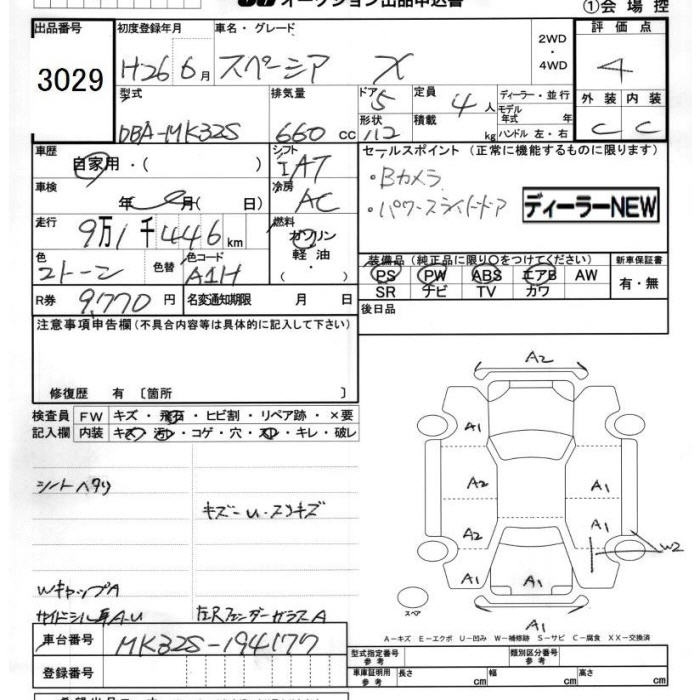 オークション出品申込書
①会場控
出品番号
3029
初度登録年月
H26 6月
車名・グレード
スペーシア X
2WD
・
4WD
評価点
4
外装 内装
C C
型式
DBA-MK32S
排気量
660 cc
ドア 5
形状
定員 4人
積載 kg
ディーラー・並行
モデル
年式 年
ハンドル 左・右
車歴
自家用・( )
シフト
IAT
車検
年 月( 日)
冷房
AC
走行
9万1千446km
燃料
ガソリン
軽油
・
( )
色
2トーン
色替
色コード
A1H
R券 9,770円
名変通知期限 月 日
セールスポイント (正常に機能するものに限ります)
・Bカメラ
・パワースライドドア
ディーラーNEW
装備品(純正品に限り○をつけてください)
PS PW ABS エアB AW
SR ナビ TV カワ
新車保証書
有・無
後日品
注意事項申告欄(不具合内容等は具体的に記入して下さい)
修復歴 有 〔箇所 〕
検査員
記入欄
FW キズ・飛石・ヒビ割・リペア跡・×要
内装 キズ・汚・コゲ・穴・スレ・キレ・破レ
シートヘタリ
キズーU・スリキズ
WキャップA
サイドシル A-U
左Rフェンダーガラス A
A2
A1
A2
A1
A2
A1
W2
A1
A1
A1
スペア
A-キズ E-エクボ U-凹み W-補修跡 S-サビ C-腐食 XX-交換済
車台番号 MK32S-194177
登録番号
型式指定番号
参考
類別区分番号
参考
車庫証明用
参考
長さ cm 幅 cm 高さ cm